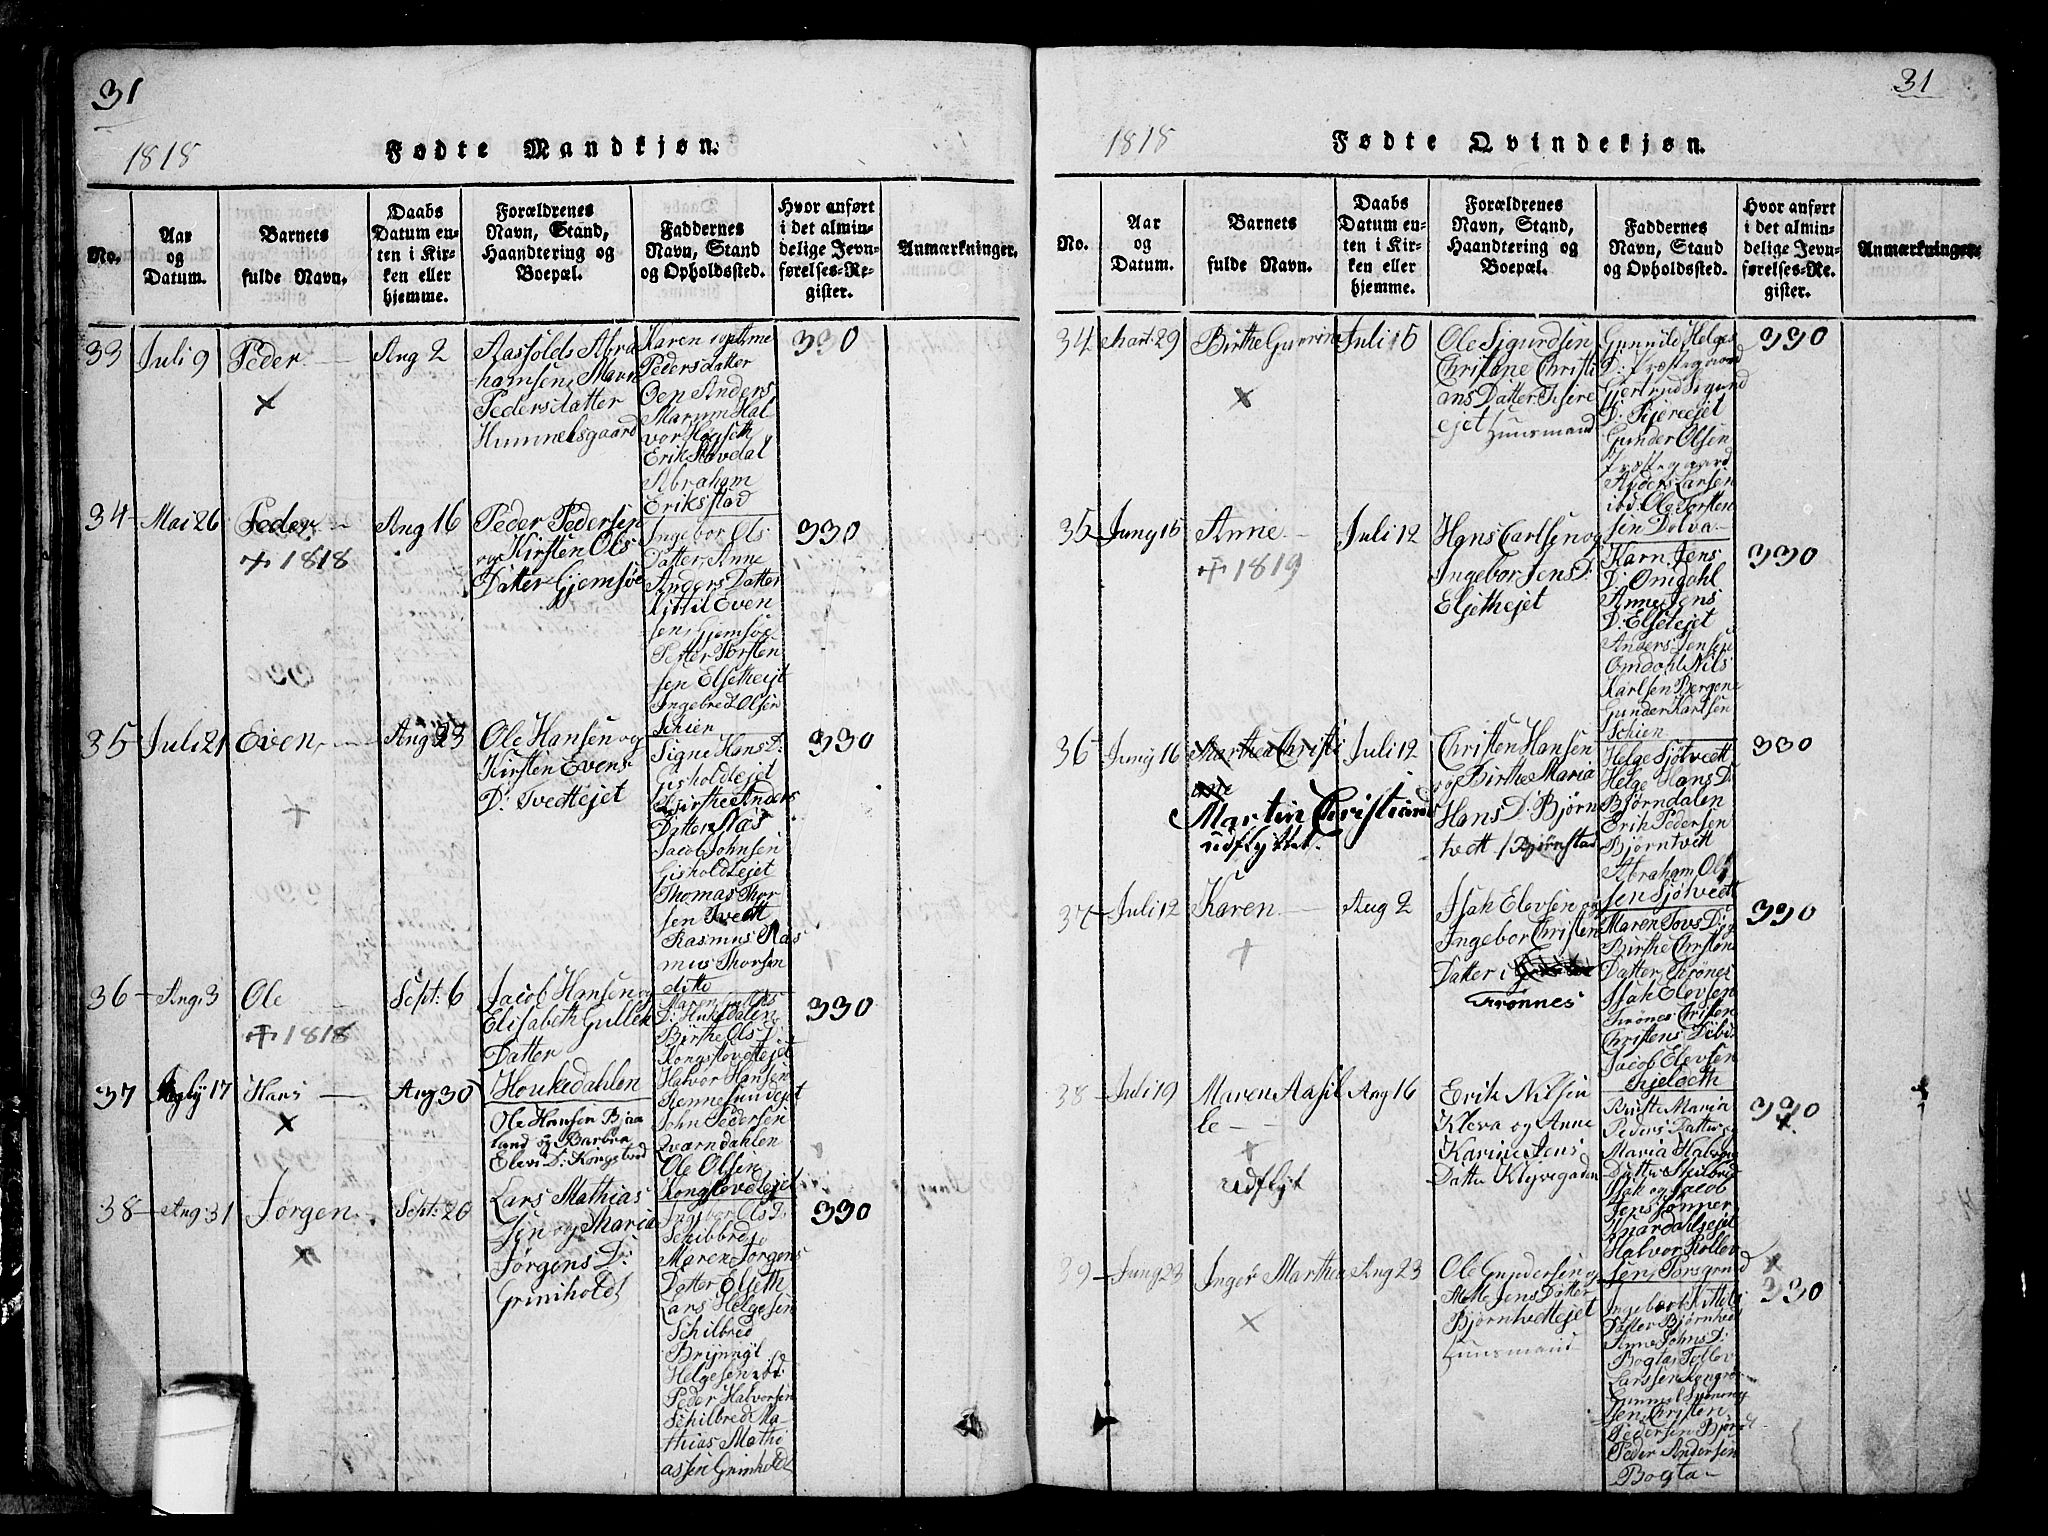 31
1818
Fødte Mandkjøn.
No.
Aar
og
Datum.
Barnets
fulde Navn.
Daabs
Datum en-
ten i Kir-
ken eller
hjemme.
Forældrenes
Navn, Stand,
Haandtering og
Boepæl.
Faddernes
Navn, Stand
og Opholdssted.
Hvor anført
i det almin-
delige Jevn-
førelses-Re-
gister.
Anmærkninger.
33
Juli 9
Peder
×
Aug 2
Aasfolds Abra
hamsen, Mavn
Pedersdatter
Hummelsgaard
Karen
Pedersdatter
Oen Anders
Marum Hal
vor Høgseth
Erik Stavdal
Abraham
Eriksstad
330
34
Mai 26
Peder
+ 1818
Aug 16
Peder Pedersen
og Kirsten Ols
Datter Gjemsøe
Ingebor Ols
Datter, Anne
Anders Datter
Kittil Even
sen, Gjemsøe
Petter Torsten
sen Elsetheijt
Ingebred Olsen
Schien
330
35
Juli 21
Even
+
Aug 23
Ole Hansen og
Kirsten Evens
D: Tvedtejet
Signe Hans D:
Gisholtejet
Birthe Anders
Datter Næs
Jacob Johnsen
Gisholdtejet
Thomas Thor
sen Tvedt
Rasmus Ras
mus Thorsen
ditto
330
36
Aug. 3
Ole
+ 1818
Sept: 6
Jacob Hansen og
Elisabeth Gulleks
Datter
Houkedahlen
Maren Gulleks
D: Hukedalen
Birthe Ols D:
Kongslovetejet
Halvor Hansen
Rennesundejet
John Pedersen
Qværndahlen
Ole Olsen
Konglovdtejet
330
37
17
Hans
×
Aug 30
Ole Hansen Bjaa
land og Barbra
Elevs D: Kongstved
38
Aug: 31
Jørgen
×
Sept: 20
Lars Mathias
Sen og Maria
Jørgens D:
Griniholdt
Ingebor Ols D:
Schilbred
Maren Jørgens
Datter Elseth
Lars Helgesen
Schilbred
Brijnnyl
Helgesen ibd:
Peder Halvorsen
Schilbred Ma-
thias Mathi
assen Grinholdt
330
31
1818
Fødte Qvindekjøn.
No.
Aar
og
Datum.
Barnets
fulde Navn.
Daabs
Datum en-
ten i Kir-
ken eller
hjemme.
Forældrenes
Navn, Stand,
Haandtering og
Boepæl.
Faddernes
Navn, Stand
og Opholdssted.
Hvor anført
i det almin-
delige Jevn-
førelses-Re-
gister.
Anmærkninger.
34
Mart: 29
Birthe Gurine
×
Juli 15
Ole Sigurdsen
Christane Christi
ans Datter Fjære
ejet Huusmand
Gunnild Helges
D: Præstegaard
Gjertrud Sigurd
D: Fijereejet
Gunder Olsen
Præstegaard
Anders Larsen
ibd. Ole Torsten
sen Dolva
330
35
Juny 15
Anne
+ 1819
Juli 12
Hans Carlsen og
Ingebor Jens D:
Elsethejet
Karn Jens
D: Omdahl
Anne Jens
D: Elsetejet
Anders Jensen
Omdahl Nils
Karlsen Bergene
Gunder Karlsen
Schien
330
36
Juny 16
Marthea Christi
ane
Martin Christiand
udflyttet.
Juli 12
Christen Hansen
og Birthe Maria
Hans D: Bjørn
tvett / Bjørnstad
Helge Sjølvett
Helge Hans D:
Bjørndalen
Erik Pedersen
Bjørntvett
Abraham Ol
sen Sjølvedt
330
37
Juli 12
Karen
+
Aug 2
Isak Elevsen og
Ingebor Christen
Datter i
Frønnes
Maren Tovs D:
Birthe Christen
Datter, Frønes
Isak Elevsen
Frønes Christen
Christens
Jacob Elevsen
Skjelbeth
330
38
Juli 19
Maren Aasil
le
+
udflyt
Aug 16
Erik Nilsen
Kleva og Anne
Karine Jens
Datter Klyvegaden
Birthe Maria
Peders Datter
Maria Halvors
Datter Skilbred
Isak og Jacob
Jens Sønner
Knardahlsejet
Halvor Rollev
sen, Porsgrund
330
×
39
Juny 23
Inger Marthea
×
Aug 23
Ole Gundersen og
Mette Jens Datter
Bjørntvettejet
Huusmand
Ingebork Kittels
Datter Bjørntvedt
Anne Johns D:
Bogta, Tollev
Larssen Kongrø
Gunnul Simmony
sen, Christen
Pedersen Bjørndt
Peder Andersen
Bogta
×
330